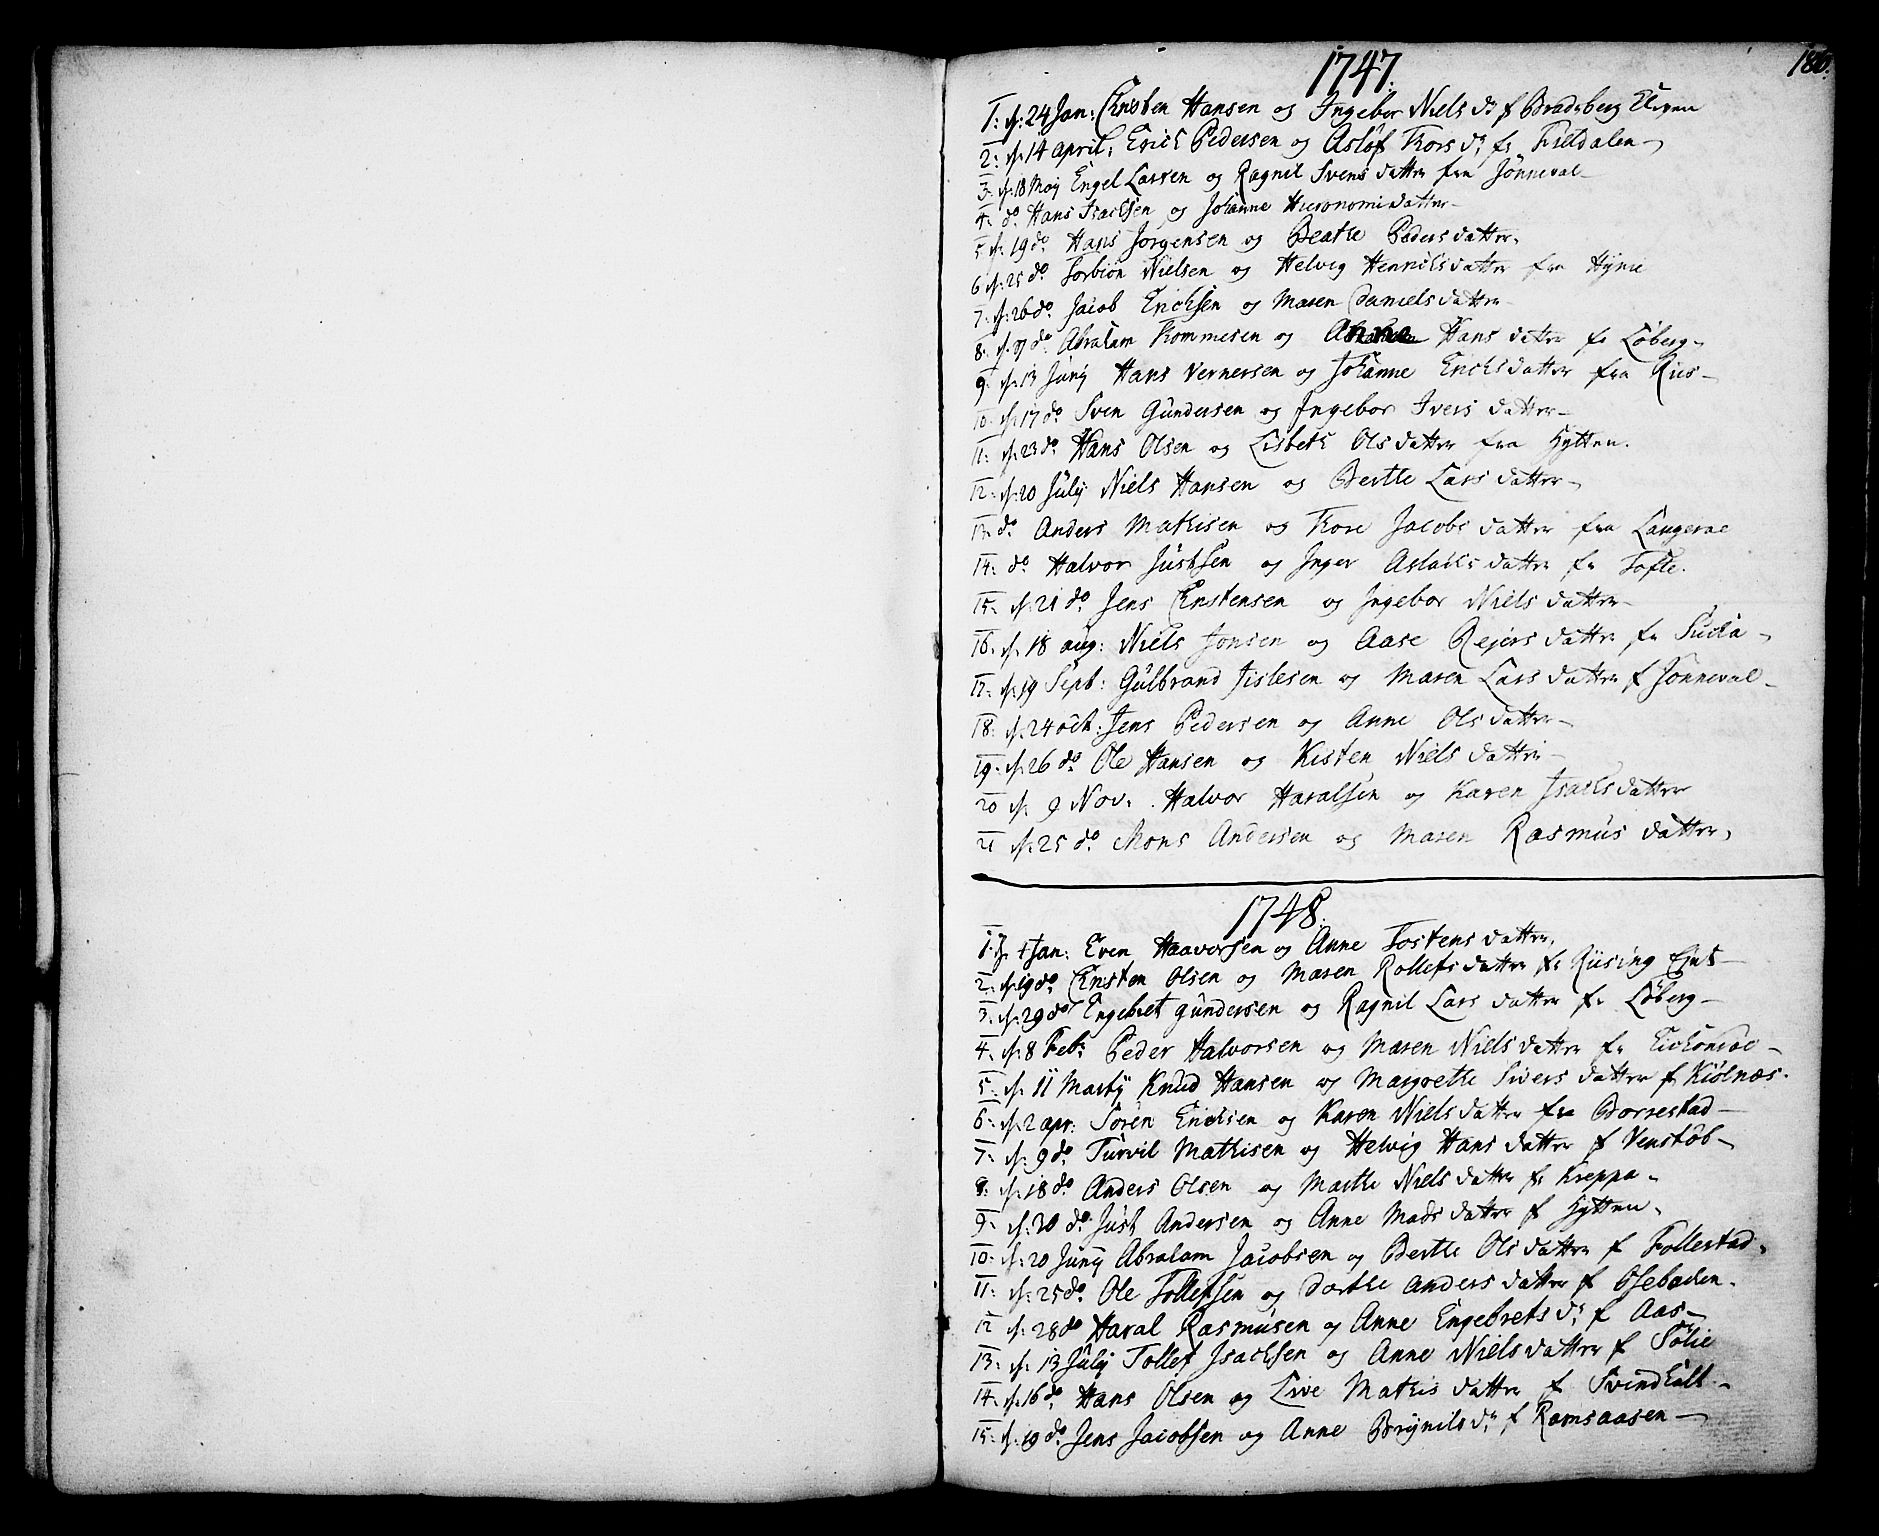 1747.
1: d: 24 Jan: Christen Hansen og Ingebor Niels dr f Bradsberg Eleven
2: d: 14 april: Erich Pedersen og Asløf Thors dr fr Fieldalen
3: d: 18 Maj Engel Larsen og Ragnil Svens datter fra Jønneval
4: do Hans Isachsen og Johanne Hieronomi datter
5 d: 19 do: Hans Jørgensen og Beathe Peders datter.
6 d: 25 do: Torbiøn Nielsen og Helvig Henrichs datter fra
7: d: 26 do: Jacob Erichsen og Maren Daniels datter
8: d: 27 do: Abraham Thommesen og Anne Hans datter fr Løberg
9: d: 13 Junij Hans Vernersen og Johanne Erichs datter fra Riis
10: d: 17 do Sven Gundersen og Ingebor Ivers datter
11: d: 23 do: Hans Olsen og Lisbeth Ols datter fra Hytten.
12: d: 20 Julij Niels Hansen og Berthe Lars datter
13: do Anders Mathisen og Thore Jacobs datter fra Langerae
14: do Halvor Justsen og Inger Aslachs datter fr Tofte.
15: d: 21 do: Jens Christensen og Ingebor Niels datter
16: d: 18 aug: Niels Jonsen og Aase Rejers datter fr
17: d: 19 Sept: Gulbrand Jislesen og Maren Lars datter f Jonneval
18: d: 24 oct: Jens Pedersen og Anne Ols datter
19: d: 26 do: Ole Hansen og Kisten Niels datter
20 d: 9 Nov: Halvor Haralsen og Karen Isachs datter
21 d: 25 do: Mons Andersen og Maren Rasmus datter,
1748.
1: d: 1 Jan: Even Haavorsen og Anne Tostens datter,
2: d: 19 do: Christen Olsen og Maren Rollefs datter fr Riising Ejet
3: d: 29 do Engebret gundersen og Ragnil Lars datter fr Løberg
4: d: 8 Feb: Peder Halvorsen og Maren Niels datter fr
5: d: 11 Martij Knud Hansen og Margrethe Sivers datter f Kiølnæs.
6: d: 2 apr: Søren Erichsen og Karen Niels datter fra Borrestad
7: d: 9 do: Turvil Mathisen og Helvig Hans datter f Venstøb
8: d: 18 do: Anders Olsen og Marthe Niels datter fr Kreppa
9: d: 20 do: Just Andersen og Anne Mads datter f Hytten.
10: d: 20 Junij Abraham Jacobsen og Berthe Ols datter f Follestad.
11: d: 25 do: Ole Tollefsen og Dorthe Anders datter f Osebacken.
12 d: 28 do Haral Rasmusen og Anne Engebrets dr: f Aas
13: d: 13 Julij Tollef Isachsen og Anne Niels datter f Sølie
14: d: 16 do: Hans Olsen og Live Mathis datter f Svindholt
15: d: 19 do: Jens Jacobsen og Anne Brynils dr: f Ramsaasen